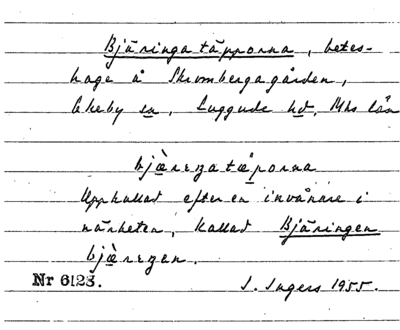 Bjäringatäpporna, betes-
hage å Skrombergagården,
Ekeby sn, Luggude hd, Mhs län
bjæreŋatæporna
Uppkallad efter en invånare i
närheten, kallad Bjäringen
bjæreŋen.
Nr 6123. I. Ingers 1955.